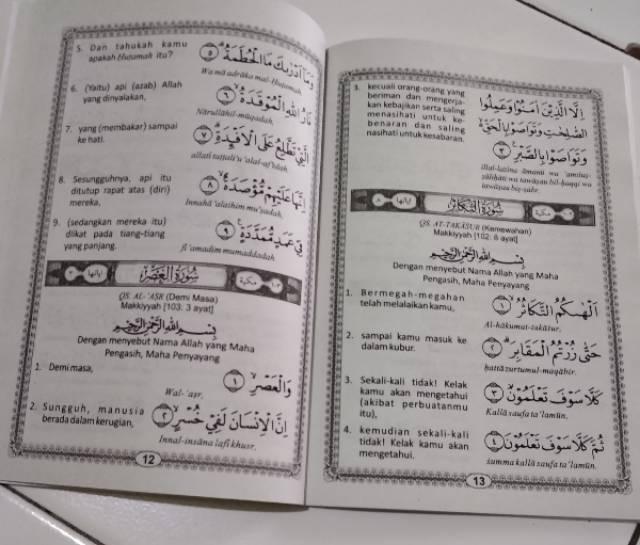 5. Dan tahukah kamu
apakah Ḥuṭamah itu?
وَمَآ اَدْرٰىكَ مَا الْحُطَمَةُ ۗ ٥
Wa mā adrāka mal-Ḥuṭamah,
6. (Yaitu) api (azab) Allah
yang dinyalakan,
نَارُ اللّٰهِ الْمُوْقَدَةُۙ ٦
Nārullāhil-mūqadah,
7. yang (membakar) sampai
ke hati.
الَّتِيْ تَطَّلِعُ عَلَى الْاَفْـِٕدَةِۗ ٧
allatī taṭṭali'u 'alal-af'idah.
8. Sesungguhnya, api itu
ditutup rapat atas (diri)
mereka,
اِنَّهَا عَلَيْهِمْ مُّؤْصَدَةٌۙ ٨
Innahā 'alaihim mu'ṣadah,
9. (sedangkan mereka itu)
diikat pada tiang-tiang
yang panjang.
فِيْ عَمَدٍ مُّمَدَّدَةٍ ٩
fī 'amadim mumaddadah.
١٠٣ مكية سُوْرَةُ الْعَصْرِ اياتها ٣
QS. AL-'AṢR (Demi Masa)
Makkiyyah [103: 3 ayat]
بِسْمِ اللّٰهِ الرَّحْمٰنِ الرَّحِيْمِ
Dengan menyebut Nama Allah yang Maha
Pengasih, Maha Penyayang
1. Demi masa,
وَالْعَصْرِۙ ١
Wal-'aṣr,
2. Sungguh, manusia
berada dalam kerugian,
اِنَّ الْاِنْسَانَ لَفِيْ خُسْرٍۙ ٢
Innal-insāna lafī khusr,
12
3. kecuali orang-orang yang
beriman dan mengerja-
kan kebajikan serta saling
menasihati untuk ke-
benaran dan saling
nasihati untuk kesabaran.
اِلَّا الَّذِيْنَ اٰمَنُوْا وَعَمِلُوا
الصّٰلِحٰتِ وَتَوَاصَوْا بِالْحَقِّ ەۙ
وَتَوَاصَوْا بِالصَّبْرِ ٣
illal-lażīna āmanū wa 'amiluṣ-
ṣāliḥāti wa tawāṣau bil-ḥaqqi wa
tawāṣau biṣ-ṣabr.
مكية سُوْرَةُ التَّكَاثُرِ اياتها ٨
QS. AT-TAKĀṠUR (Kemewahan)
Makkiyyah [102: 8 ayat]
بِسْمِ اللّٰهِ الرَّحْمٰنِ الرَّحِيْمِ
Dengan menyebut Nama Allah yang Maha
Pengasih, Maha Penyayang
1. Bermegah-megahan
telah melalaikan kamu,
اَلْهٰىكُمُ التَّكَاثُرُۙ ١
Al-hākumut-takāṡur,
2. sampai kamu masuk ke
dalam kubur.
حَتّٰى زُرْتُمُ الْمَقَابِرَۗ ٢
ḥattā zurtumul-maqābir.
3. Sekali-kali tidak! Kelak
kamu akan mengetahui
(akibat perbuatanmu
itu),
كَلَّا سَوْفَ تَعْلَمُوْنَۙ ٣
Kallā saufa ta'lamūn,
4. kemudian sekali-kali
tidak! Kelak kamu akan
mengetahui.
ثُمَّ كَلَّا سَوْفَ تَعْلَمُوْنَ ٤
ṡumma kallā saufa ta'lamūn.
13